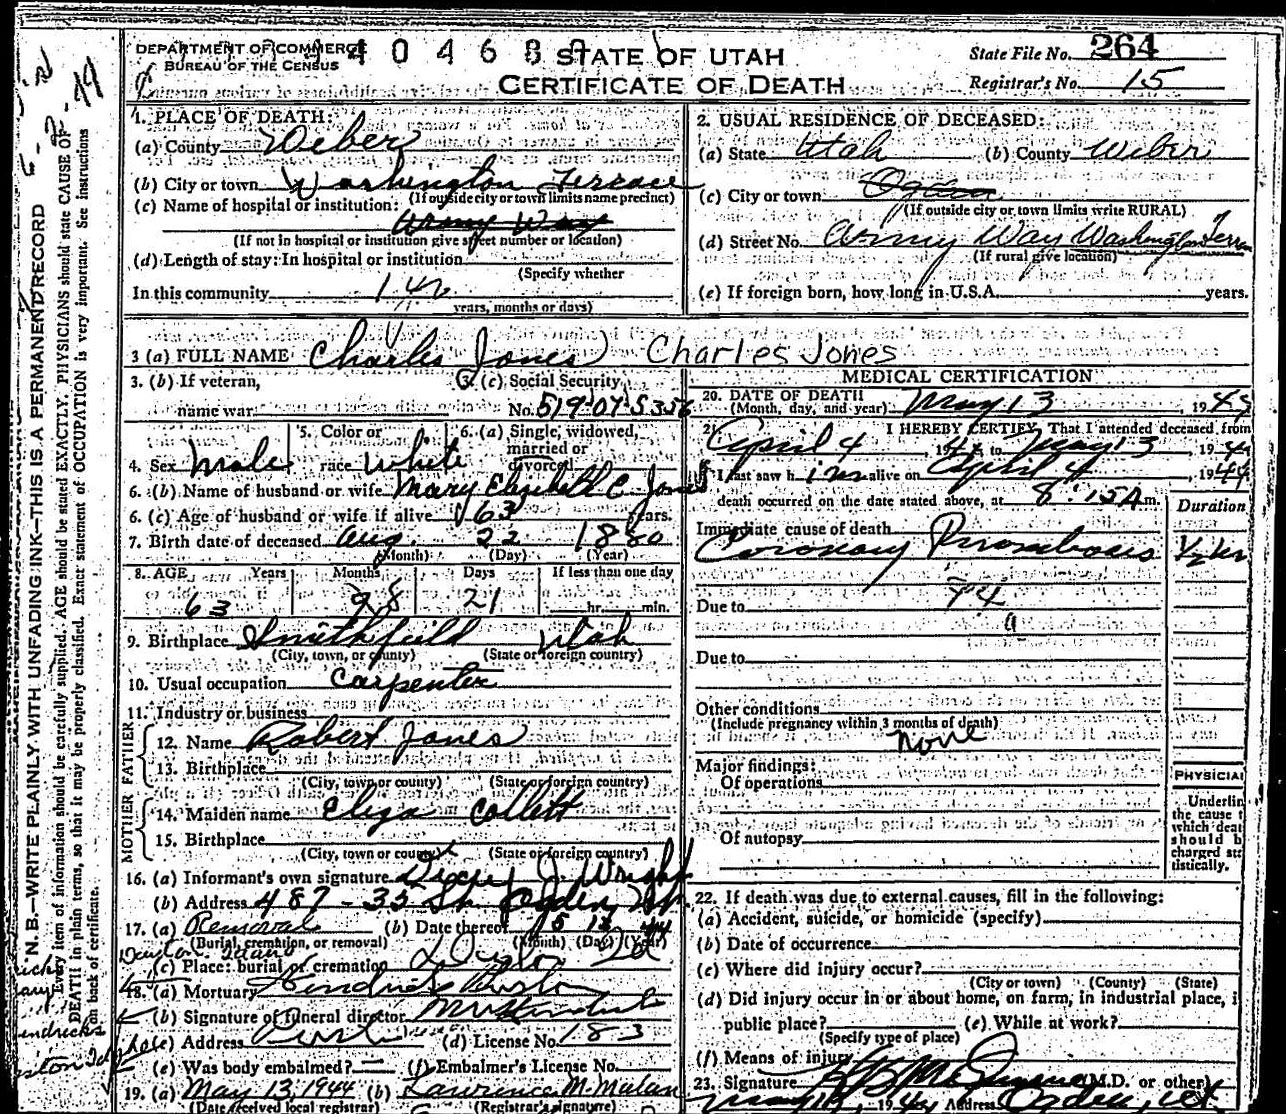 DEPARTMENT OF COMMERCE
BUREAU OF THE CENSUS
STATE OF UTAH
CERTIFICATE OF DEATH
State File No. 264
Registrar's No. 15
1. PLACE OF DEATH:
(a) County Weber
(b) City or town Washington Terrace
(If outside city or town limits name precinct)
(c) Name of hospital or institution:
Army Way
(If not in hospital or institution give street number or location)
(d) Length of stay: In hospital or institution
(Specify whether
In this community 1 yr
years, months or days)
2. USUAL RESIDENCE OF DECEASED:
(a) State Utah (b) County Weber
(c) City or town Ogden
(If outside city or town limits write RURAL)
(d) Street No. Army Way Washington Terrace
(If rural give location)
(e) If foreign born, how long in U.S.A. years.
3 (a) FULL NAME Charles Jones Charles Jones
3. (b) If veteran,
name war
3. (c) Social Security
No. 519-07-5356
4. Sex Male
5. Color or
race White
6. (a) Single, widowed,
married or
divorced
6. (b) Name of husband or wife Mary Elizabeth C. Jones
6. (c) Age of husband or wife if alive 63 years.
7. Birth date of deceased Aug. 22 1880
(Month) (Day) (Year)
8. AGE Years Months Days If less than one day
63 8 21 hr. min.
9. Birthplace Smithfield Utah
(City, town, or county) (State or foreign country)
10. Usual occupation Carpenter
11. Industry or business
FATHER
12. Name Robert Jones
13. Birthplace
(City, town or county) (State or foreign country)
MOTHER
14. Maiden name Eliza Collett
15. Birthplace
(City, town or county) (State or foreign country)
16. (a) Informant's own signature J. Wright
(b) Address 487 - 35 St. Ogden
17. (a) Removal (b) Date thereof 5 13 44
(Burial, cremation, or removal) (Month) (Day) (Year)
Dayton Idaho
(c) Place: burial or cremation Dayton Ida
18. (a) Mortuary
(b) Signature of funeral director
(c) Address (d) License No. 183
(e) Was body embalmed? (f) Embalmer's License No.
19. (a) May 13, 1944 (b) Lawrence M. Malan
(Date received local registrar) (Registrar's signature)
MEDICAL CERTIFICATION
20. DATE OF DEATH
(Month, day, and year) May 13, 194
21. I HEREBY CERTIFY, That I attended deceased from
April 4, 1944 to May 13, 1944
I last saw him alive on April 4, 1944
death occurred on the date stated above, at 8:15 A m.
Duration
Immediate cause of death
Coronary Thrombosis ½ hr
Due to 94
a
Due to
Other conditions
(Include pregnancy within 3 months of death)
none
Major findings:
Of operations
Of autopsy
PHYSICIAN
Underlin
the cause t
which deat
should b
charged sta
tistically.
22. If death was due to external causes, fill in the following:
(a) Accident, suicide, or homicide (specify)
(b) Date of occurrence
(c) Where did injury occur?
(City or town) (County) (State)
(d) Did injury occur in or about home, on farm, in industrial place, i
public place? (e) While at work?
(Specify type of place)
(f) Means of injury
23. Signature (M.D. or other)
Address Ogden, Ut
N. B.—WRITE PLAINLY WITH UNFADING INK—THIS IS A PERMANENT RECORD
Every item of information should be carefully supplied. AGE should be stated EXACTLY. PHYSICIANS should state CAUSE OF
DEATH in plain terms, so that it may be properly classified. Exact statement of OCCUPATION is very important. See instructions
on back of certificate.